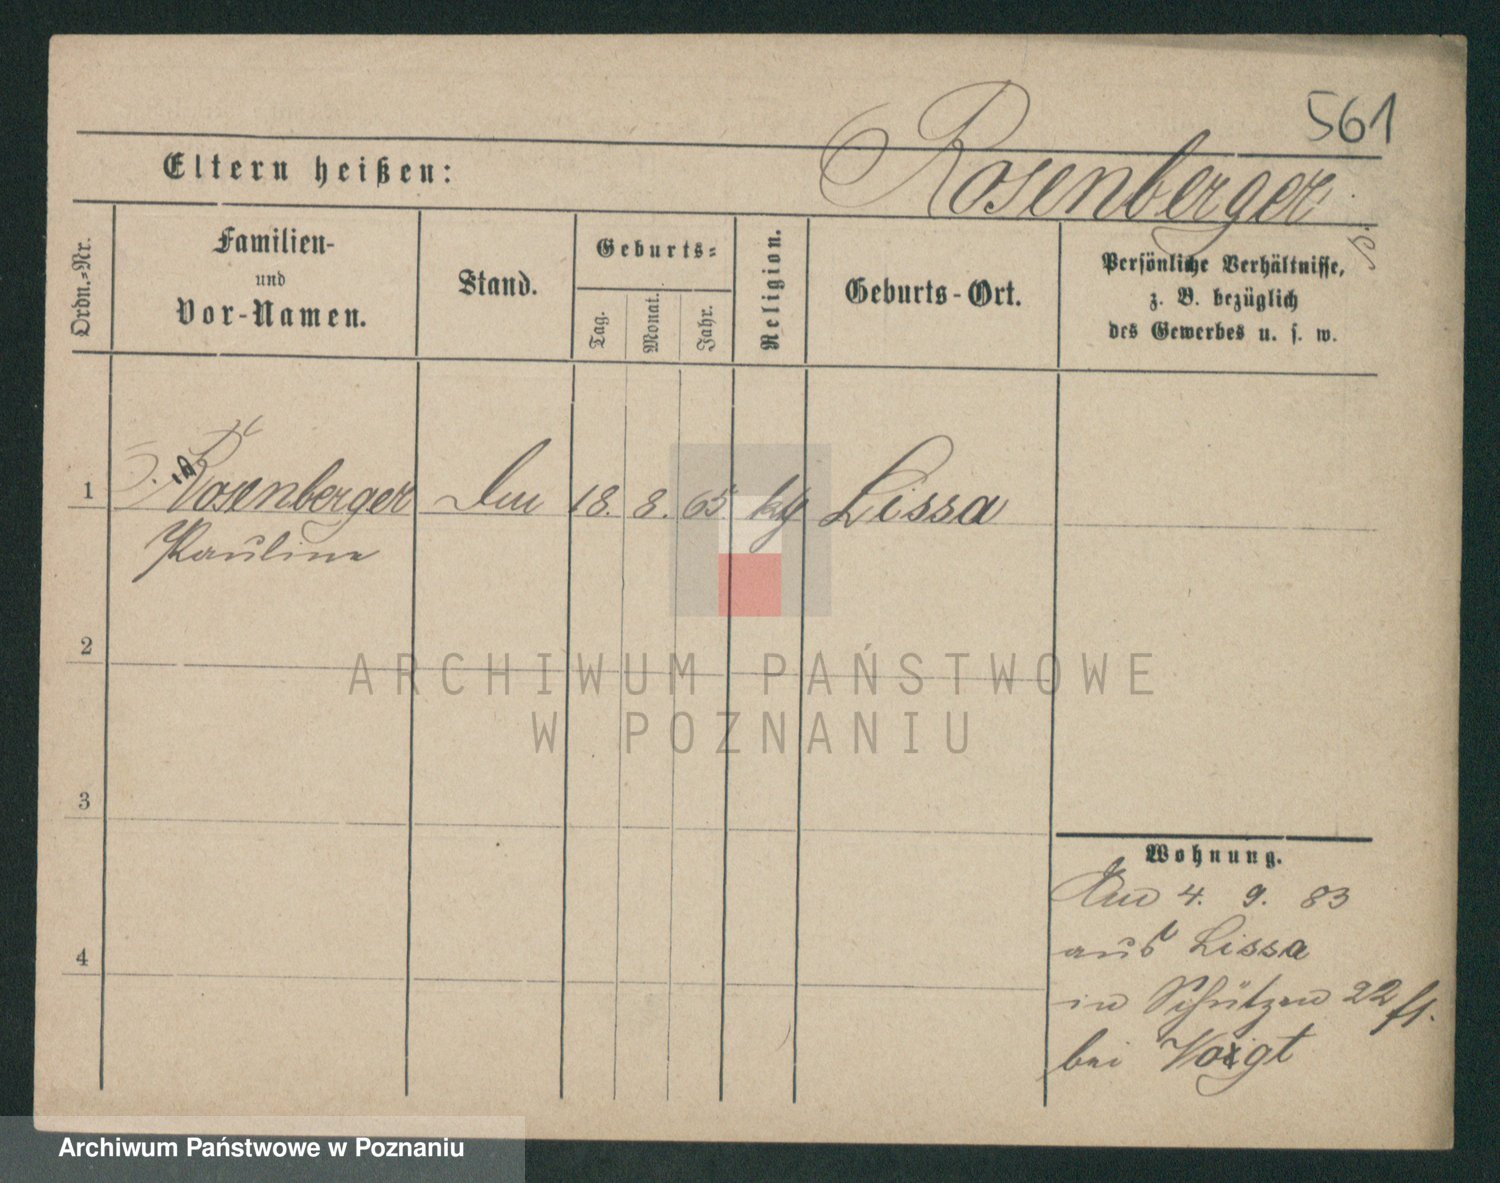 561
Rosenberger
Eltern heißen:
Ordn.-Nr.
Familien-
und
Vor-Namen.
Stand.
Geburts-
Tag.
Monat.
Jahr.
Religion.
Geburts-Ort.
Persönliche Verhältnisse,
z. B. bezüglich
des Gewerbes u. s. w.
1 Rosenberger 18. 8. 65 Lissa
Pauline
2
3
4
Wohnung.
4. 9. 83
aus Lissa
in Schützen 22
bei Voigt
ARCHIWUM PAŃSTWOWE
W POZNANIU
Archiwum Państwowe w Poznaniu